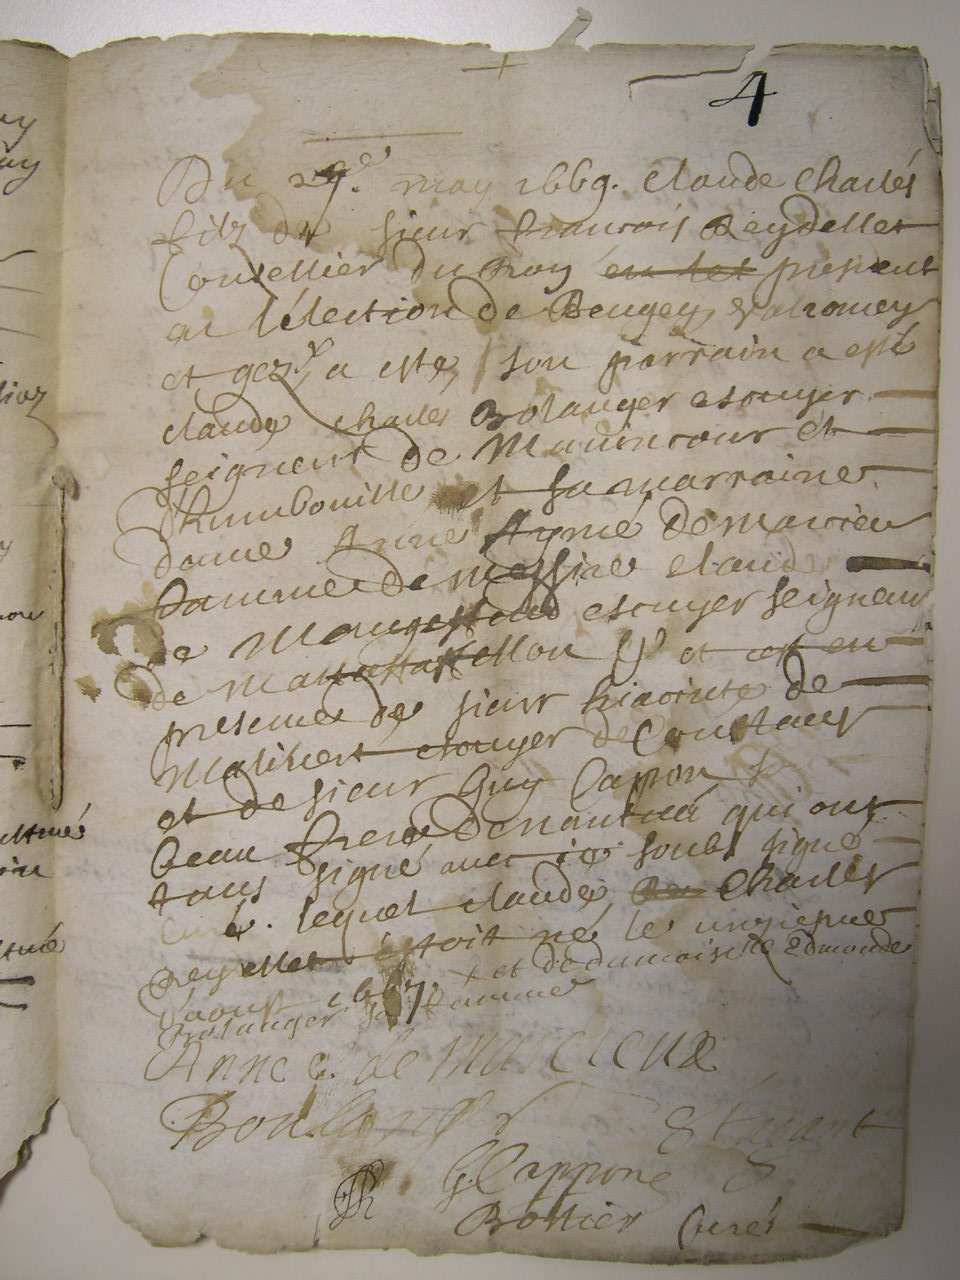 4
Du 29e. may 1669. Claude Charles
filz de sieur francois Reydellet
Conseillier du Roy en let president
en l'election de Beugey, Valromey
et gez, a este, son parrain a esté
claude charles Bolanger escuyer
seigneur de Mauincour et
et sa marraine
dame Anne Aymé de marcieu
famme de messire claude
de escuyer seigneur
de et cest en
presence de sieur hiacinte de
Malivert escuyer de Conflans
et de sieur Guy Cappon
beau frere de nantua qui ont
tous signé avec ie soubs signé
curé. lequel claude Charles
reydellet estoit né le unziesme
d'aoust 1667. + et de damoiselle Edmonde
Bolanger sa famme
Anne e. de marcieux
Boulanger
G Cappone
Bottier Curé